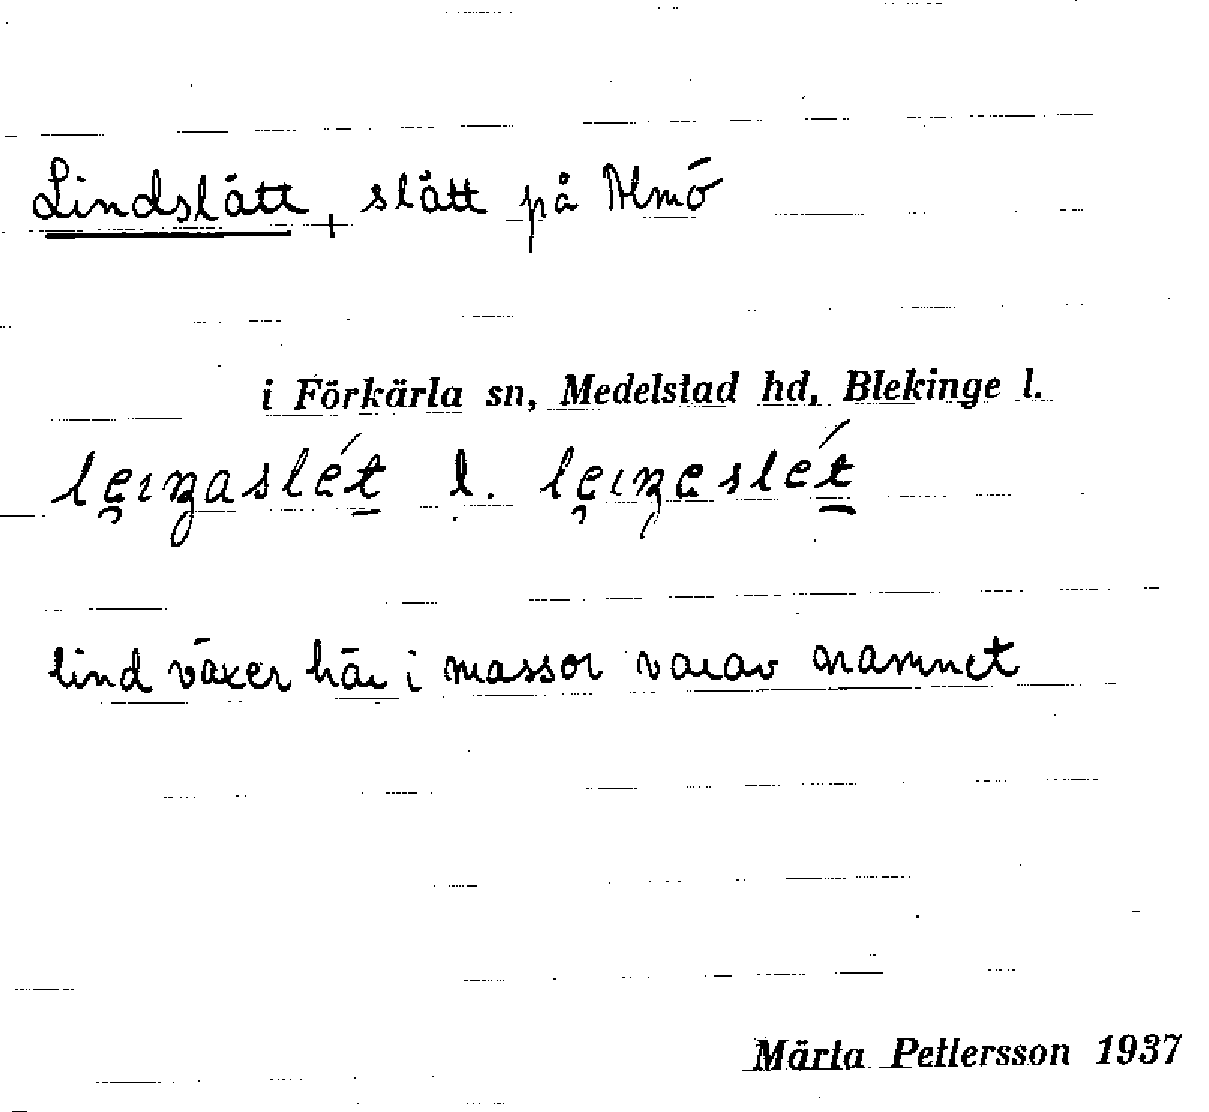 Lindslätt, slätt på Almö
i Förkärla sn, Medelstad hd, Blekinge l.
l.
lind växer här i massor varav namnet
Märta Pettersson 1937